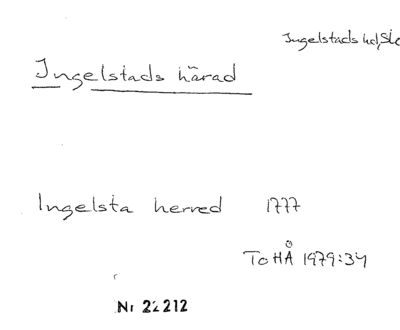 Ingelstads hd, Sk
Ingelstads härad
Ingelsta herred 1777
ToHÅ 1979:34
Nr 22212